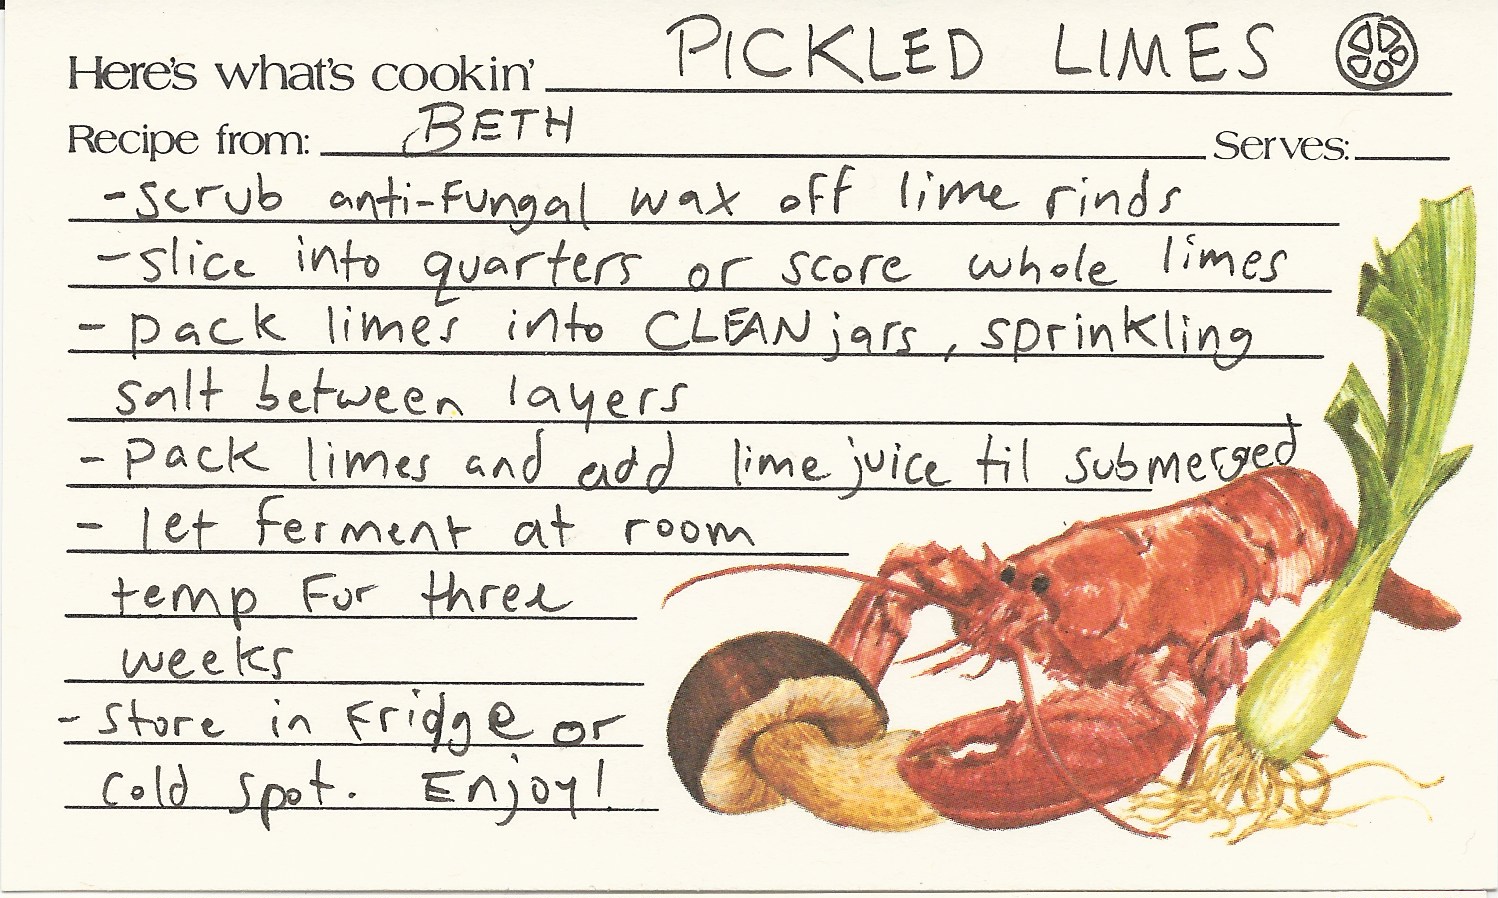 Here's what's cookin' PICKLED LIMES
Recipe from: BETH Serves:
- scrub anti-fungal wax off lime rinds
- slice into quarters or score whole limes
- pack limes into CLEAN jars, sprinkling
salt between layers
- pack limes and add lime juice til submerged
- let ferment at room
temp for three
weeks
- store in fridge or
cold spot. Enjoy!